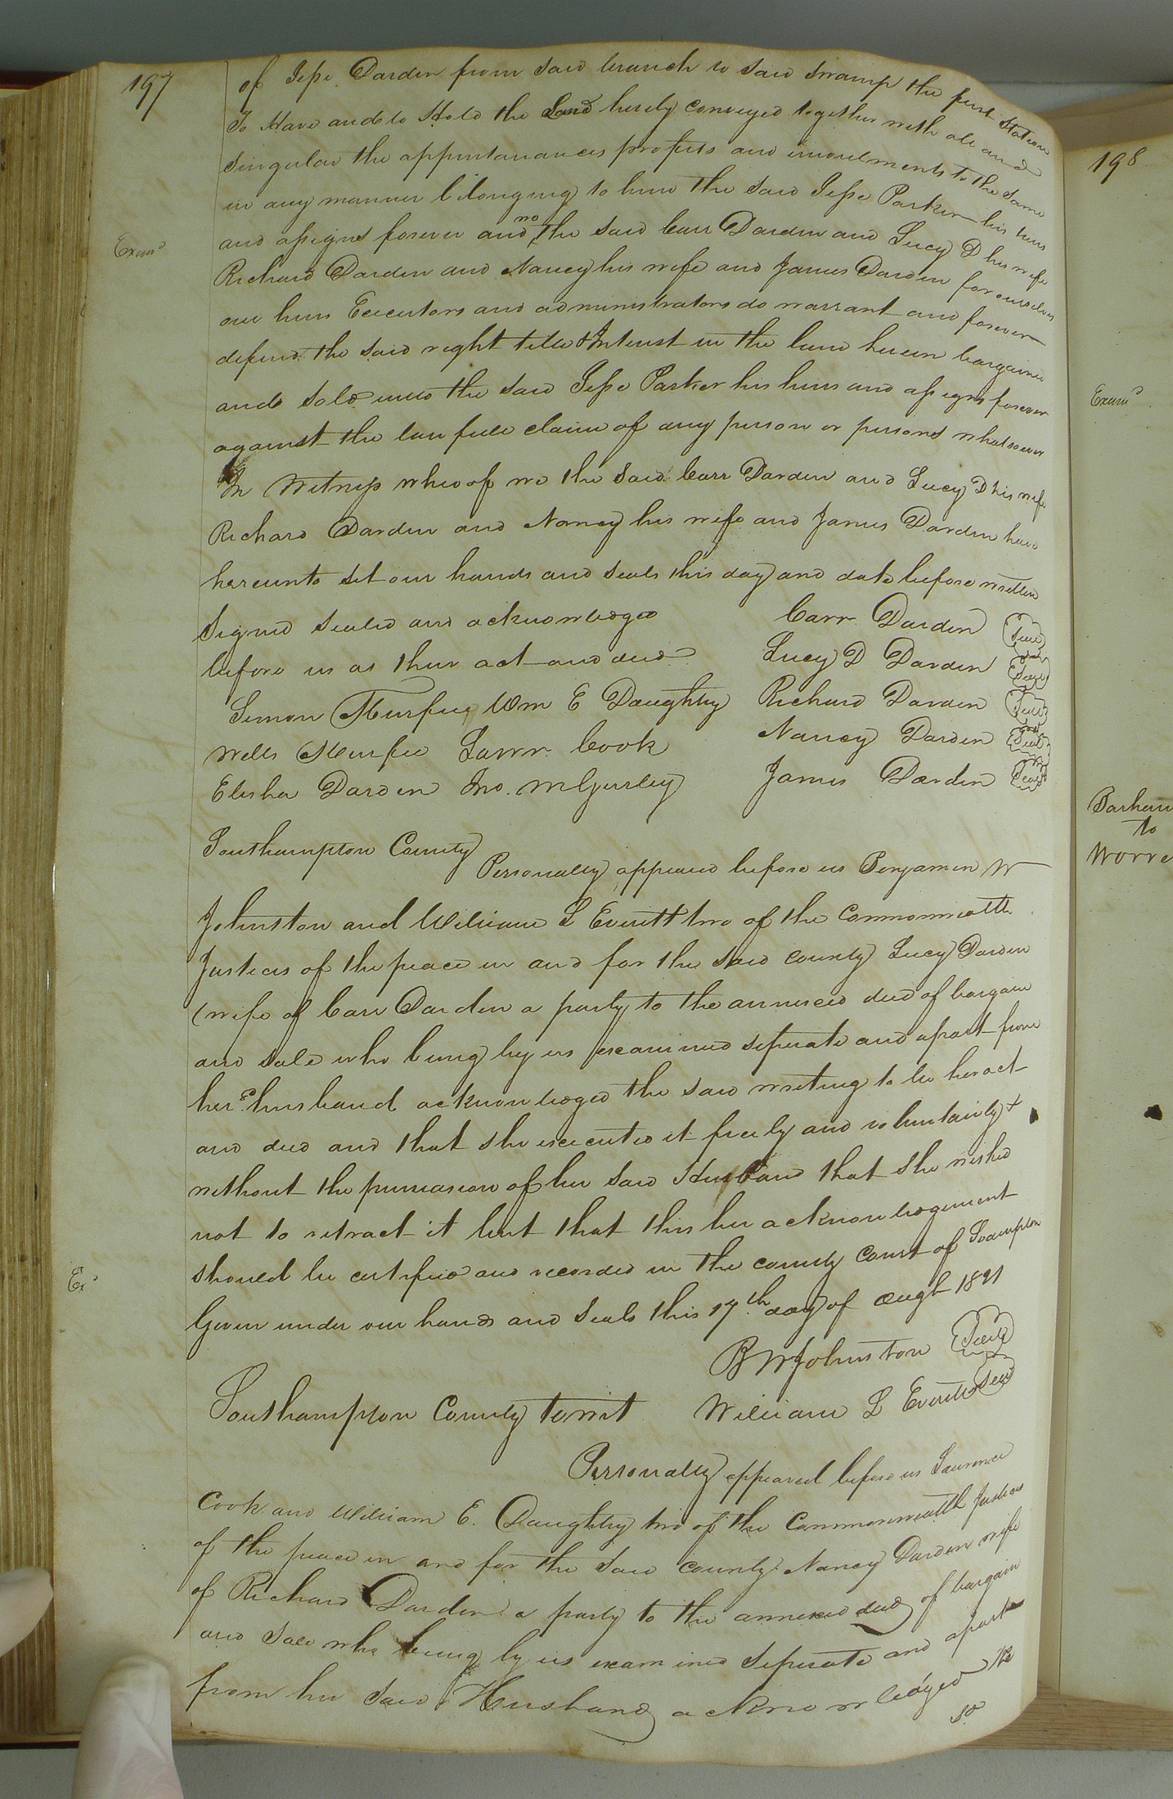 197
of Jesse Darden from said branch to said swamp the first Station
To Have and to Hold the Land hereby conveyed together with all and
Singular the appurtanances profits and emoulments to the Same
in any manner belonging to him the said Jesse Parker his heirs
and assigns forever and we the said Carr Darden and Lucy D his wife
Exam.d
Richard Darden and Nancy his wife and James Darden for ourselves
our heirs Executors and administrators do warrant and forever
defend the said right title & Interest in the land herein bargained
and sold unto the said Jesse Parker his heirs and assigns forever
against the lawfull claim of any person or persons whatsoever
In Witness whereof we the said Carr Darden and Lucy D his wife
Richard Darden and Nancy his wife and James Darden have
hereunto set our hands and seals this day and date before written
Signed Sealed and acknowledged Carr Darden Seal
before us as their act and deed Lucy D Darden Seal
Simon Murfee Wm E Daughtry Richard Darden Seal
Wells Murfee Lawr. Cook Nancy Darden Seal
Elisha Darden Jno. McGurley James Darden Seal
Southampton County
Personally appeared before us Benjamin W
Johnston and William L Everitt two of the Commonwealth
Justices of the peace in and for the said county Lucy Darden
(wife of Carr Darden a party to the annexed deed of bargain
and sale who being by us examined seperate and apart from
her husband acknowledged the said writing to be her act
and deed and that she executed it freely and voluntairly +
without the persuasion of her said Husband that she wished
not to retract it but that this her acknowledgement
should be certified and recorded in the county court of Soampton
Ex.d
Given under our hands and Seals this 17th day of Augt 1821
B W Johnston Seal
Southampton County towit William L Everitt Seal
Personally appeared before us Laurence
Cook and William E. Daughtry two of the Commonwealth Justices
of the peace in and for the said county Nancy Darden wife
of Richard Darden a party to the annexed deed of bargain
and sale who being by us examined seperate and apart
from her said Husband acknowledged the
sd
198
Exam.d
Barham
to
Worre